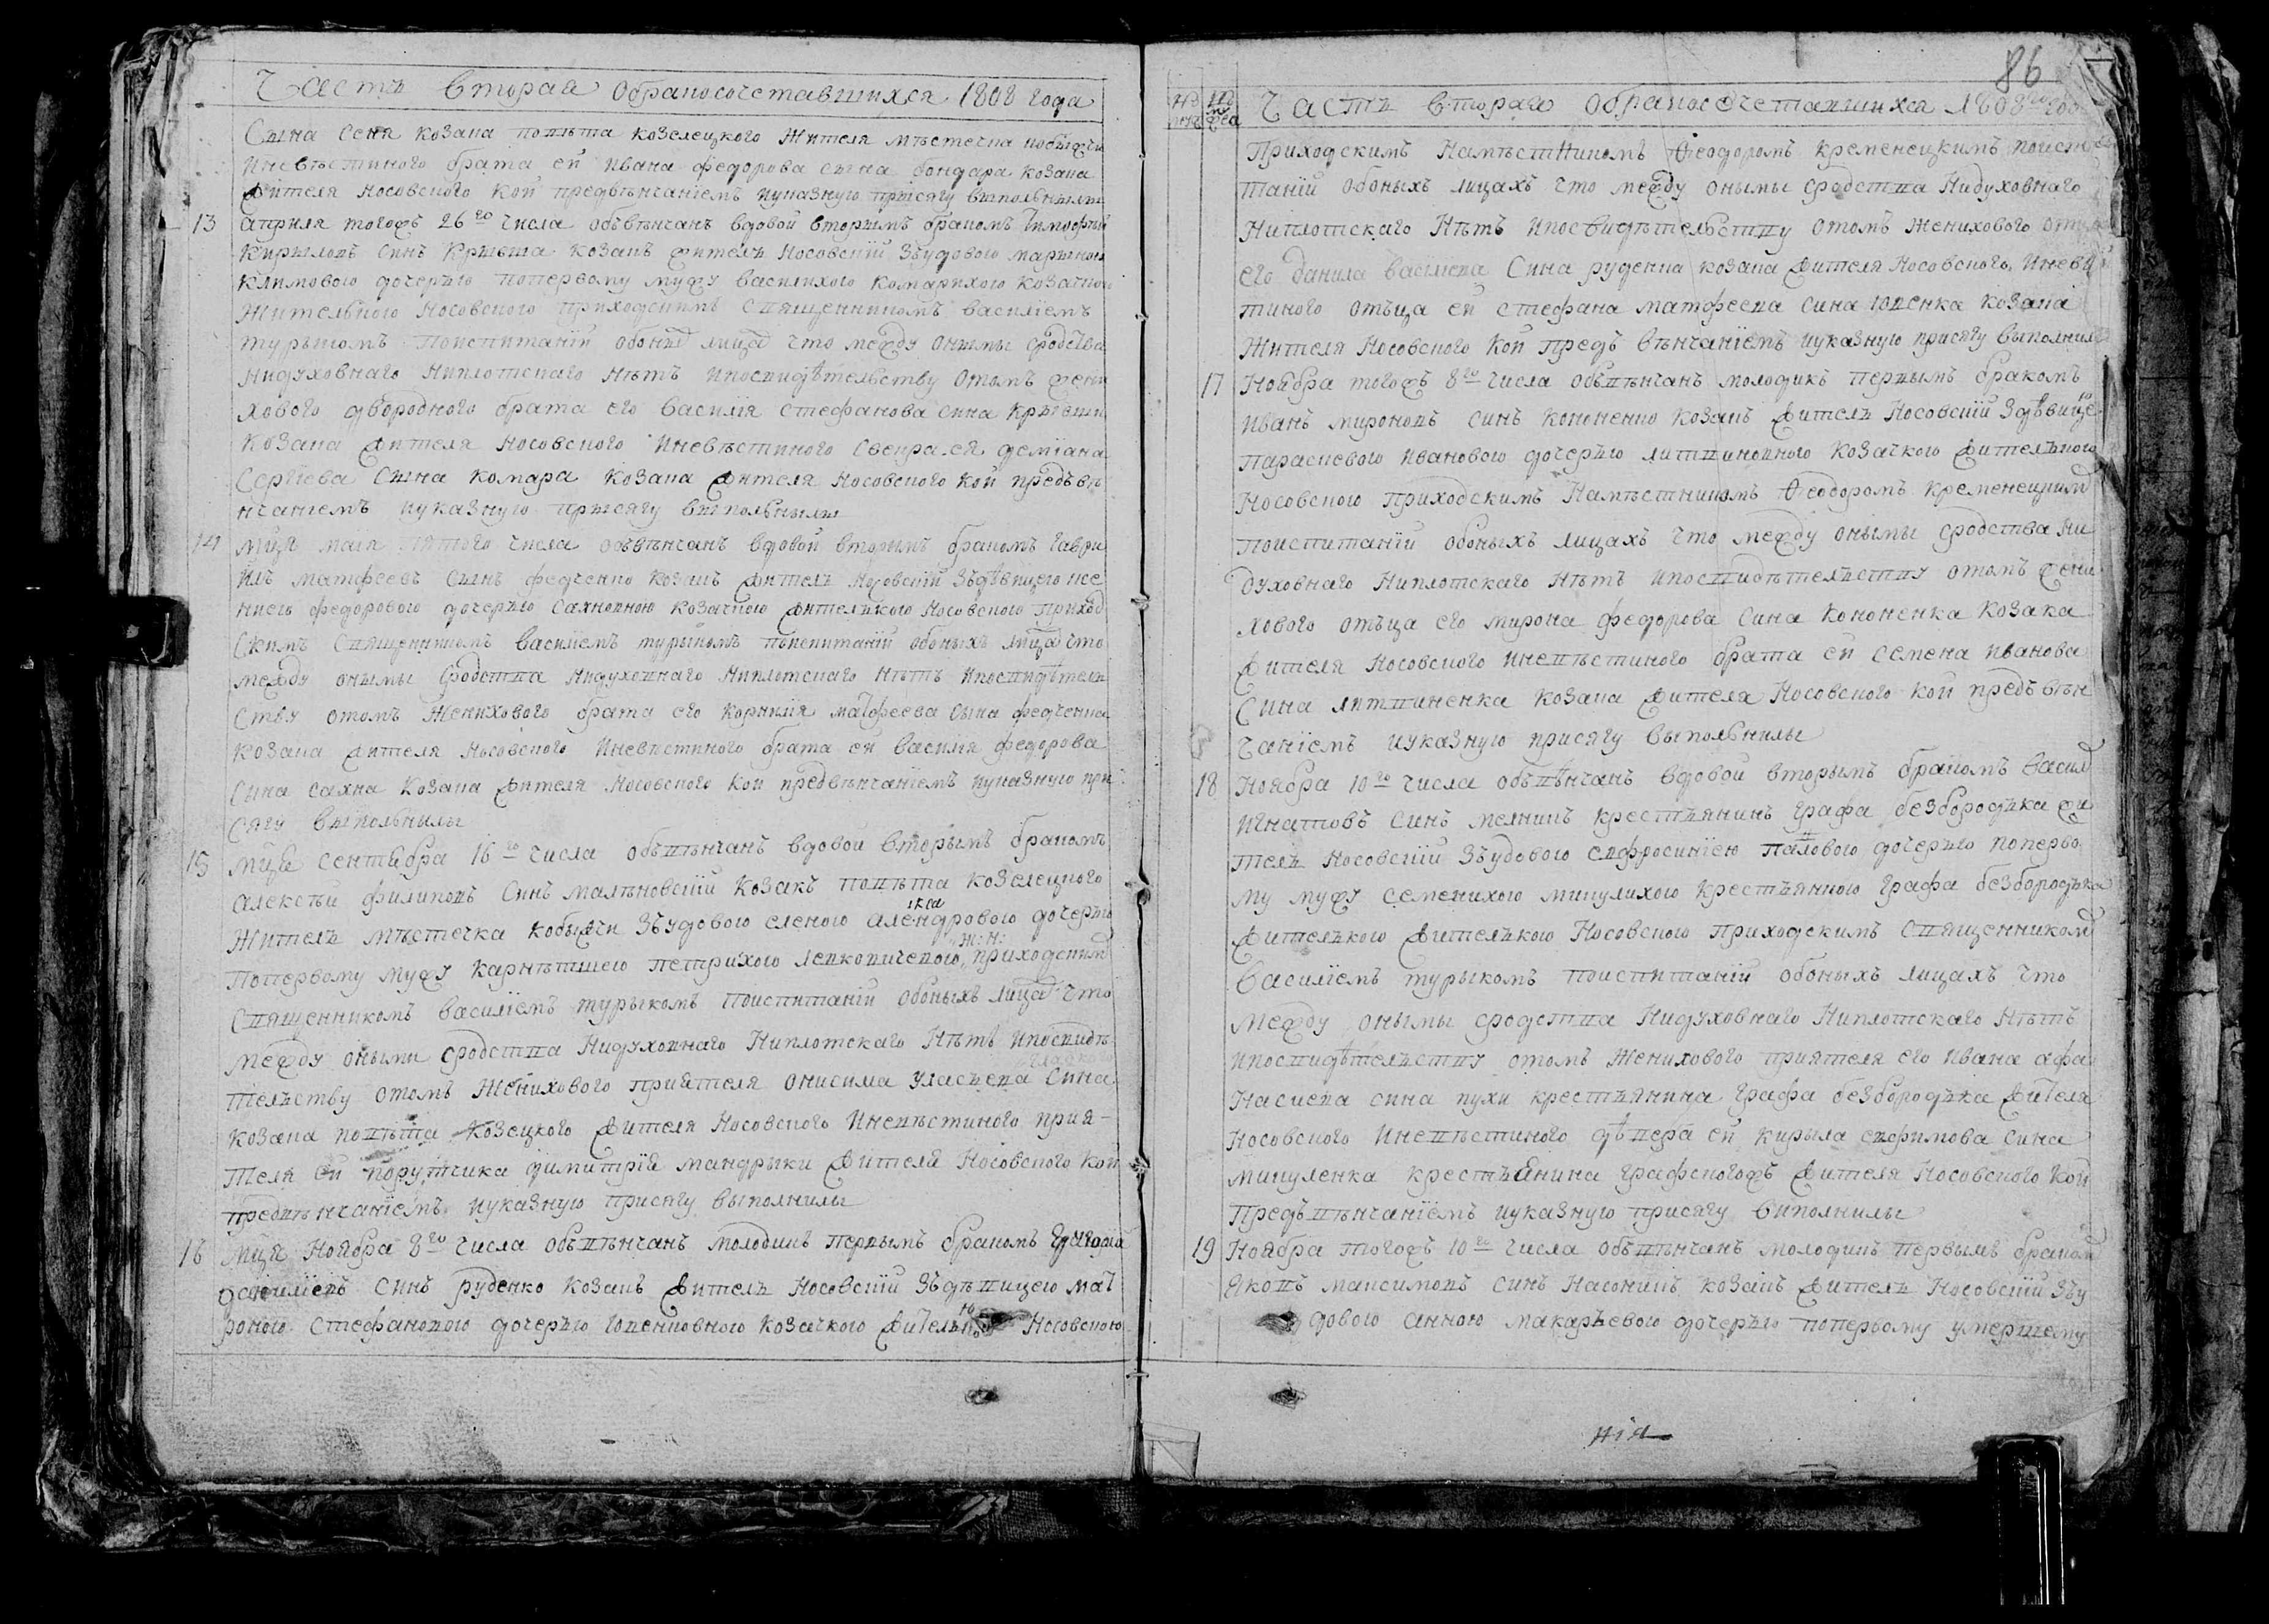 Часть вторая обракосочетавшихся 1808 года
Сына Сеня козака повѣта козелецкого жителя мѣстечка кобыжчи
иневѣстиного брата ей Ивана федорова сына бондара козака
жителя Носовского кой предвѣнчаніемъ иуказную присягу выполнылы
13 Априля тогожъ 26го числа объвѣнчанъ вдовой вторымъ бракомъ Тимофѣй
Кирыловъ синъ Крывша козакъ жителъ Носовскій зъудовою марыною
Климового дочерью попервому мужу василихою комарихою козачкою
жителькою Носовского приходскимъ священникомъ василіемъ
турыкомъ поиспитаніи обоихъ лицъ что между онымы сродства
нидуховнаго ниплотскаго нѣтъ ипосвидѣтельству отомъ жени
хового двородного брата его Василія Стефанова сина Крывши
козака жителя Носовского иневѣстиного свекра ея деміана
Сергіева сына комара козака жителя Носовского кой предъвѣ
нчаніемъ иуказную присягу выполънылы
14 Мця маія пятого числа объвѣнчанъ вдовой вторымъ бракомъ гаври
илъ матфеевъ сынъ федченко козакъ жителъ Носовскій зъдѣвицею ксе
ниею федоровою дочерью сахновною козачкою жителькою Носовского приход
скимъ священникомъ василіемъ турыкомъ поиспитаніи обоныхъ лицъ что
между онымы сродства нидуховнаго ниплотскаго нѣтъ ипосвидѣтель
ству отомъ женихового брата его Корнилія матфеева сына федченка
козака жителя Носовского иневѣстиного брата ей василія федорова
сына сахна козака жителя Носовского кои предвѣнчаніемъ иуказную при
сягу выполънылы
15 Мця сентября 16го числа объвѣнчанъ вдовой вторымъ бракомъ
алексѣй филиповъ синъ малѣновскій козакъ повѣта козелецкого
жителъ мѣстечка кобыжчи зъудовою еленою александровою дочерью
попервому мужу карнѣтшею петрихою левковичевою, Ж: Н: приходским
священникомъ василіемъ турыкомъ поиспитаніи обоныхъ лицъ что
между оными сродства нидуховнаго ниплотскаго нѣтъ ипосвидѣ
телъству отомъ женихового пріятеля онисима уласъева сина
козака повѣта козецкого жителя Носовского иневѣстиного прия-
теля ей порутчика димитрія мандрыки жителя Носовского кои
предвѣнчаніемъ иуказную присягу выполнилы
16 Мця Ноября 8го числа объвѣнчанъ молодикъ первымъ бракомъ
синъ руденко козакъ жителъ Носовскій зъдѣвицею мат
роною стефановою дочерью юценковною козачкою жителькою Носовскою
86
Часть вторая обракосочетавшихся 1808го
приходскимъ Намѣстникомъ Феодоромъ кременецкимъ поиспы
таніи обоныхъ лицахъ что между онымы сродства нидуховнаго
ниплотскаго нѣтъ ипосвидѣтелъству отомъ женихового отца
его данила василева сина руденка козака жителя Носовского, иневѣ
тиного отъца ей стефана матфеева сина юценка козака
жителя Носовского кой предъ вѣнчаніемъ иуказную присягу выполнил
17 Ноября тогожъ 8го числа объвѣнчанъ молодикъ первымъ бракомъ
иванъ мироновъ синъ кононенко козакъ жителъ Носовскій здѣвицею
параскевою ивановою дочерью литвиновною козачкою жителъкою
Носовскою приходскимъ Намѣстникомъ Феодоромъ кременецким
поиспитаніи обоныхъ лицахъ что между онымы сродства ни
духовнаго ниплотскаго нѣтъ ипосвидѣтелъству отомъ жени
хового отъца его мирона федорова сина кононенка козака
жителя Носовского иневѣстиного брата ей семена иванова
сина литвиненка козака жителя Носовского кои предъ вѣн
чаніемъ иуказную присягу выполънилы
18 Ноября 10го числа объвѣнчанъ вдовой вторымъ бракомъ васил
игнатовъ синъ мелникъ крестъянинъ графа безбородъка жи
телъ Носовскій зъудовою евфросиніею павловою дочерью поперво
му мужу семенихою микулихою крестъянкою графа безбородъка
жителъкою жителъкою Носовскою приходскимъ священником
василіемъ турыкомъ поиспитаніи обоныхъ лицахъ что
между онымы сродства нидуховнаго ниплотскаго нѣтъ
ипосвидѣтелъству отомъ женихового пріятеля его ивана афа
насиева сина пухи крестъянина графа безбородъка жителя
Носовского иневѣстиного дѣвера ей кирыла евфимова сина
микуленка крестъянина графскогожъ жителя Носовского кой
предъвѣнчаніемъ иуказную присягу виполнилы
19 Ноября тогожъ 10го числа объвѣнчанъ молодикъ первымъ браком
Яковъ максимовъ синъ Насоникъ козакъ жителъ Носовскій зъу
довою анною макаръевою дочерью попервому умершему
нія